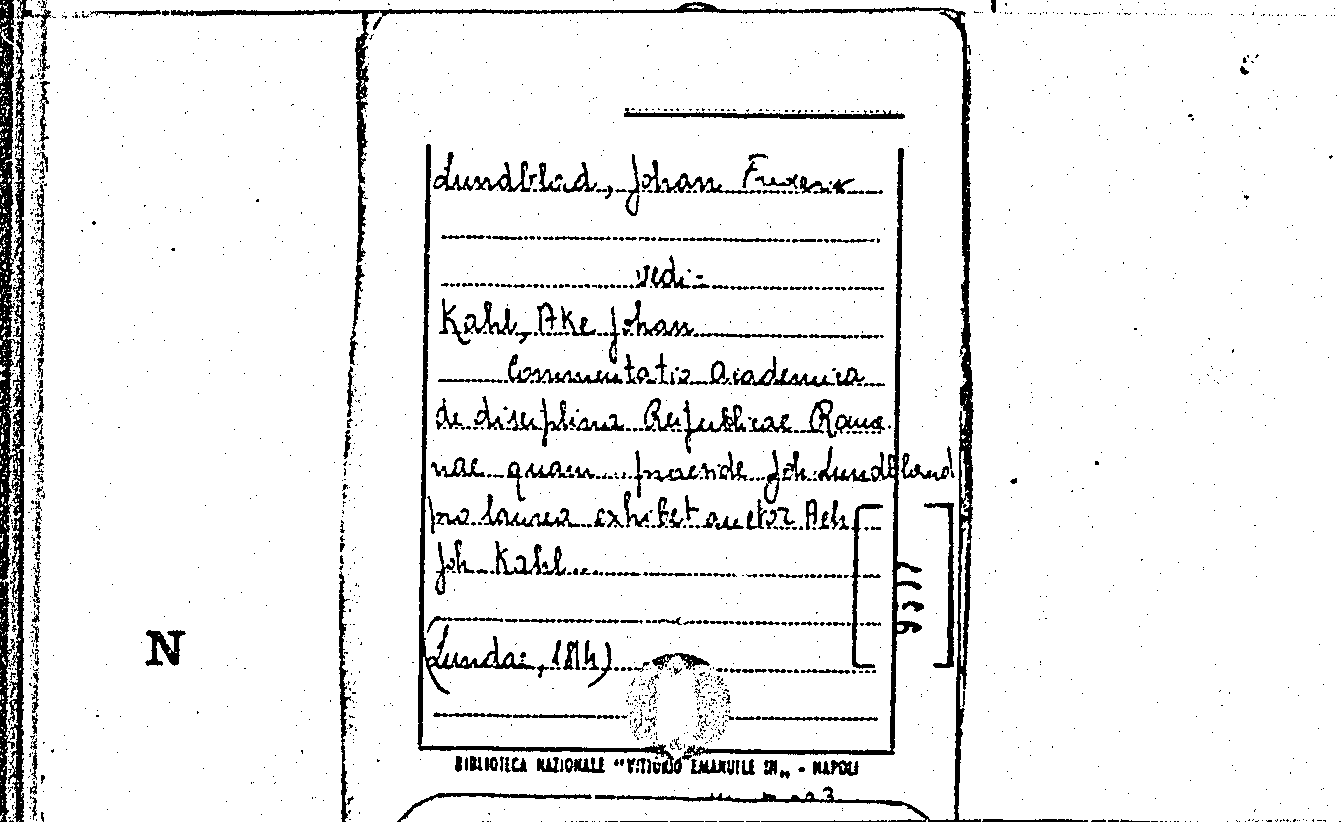 Lundblad, Johan Frexerix
vedi:
Kahl, Ake Johan
Commentatio Academica
de disciplina Reipublicae Roma
nae quam praeside Joh. Lundbland
pro laurea exhibet auctor Ach.
Joh. Kahl...
(Lundae, 1814)
N
BIBLIOTECA NAZIONALE "VITTORIO EMANUELE III„ - NAPOLI